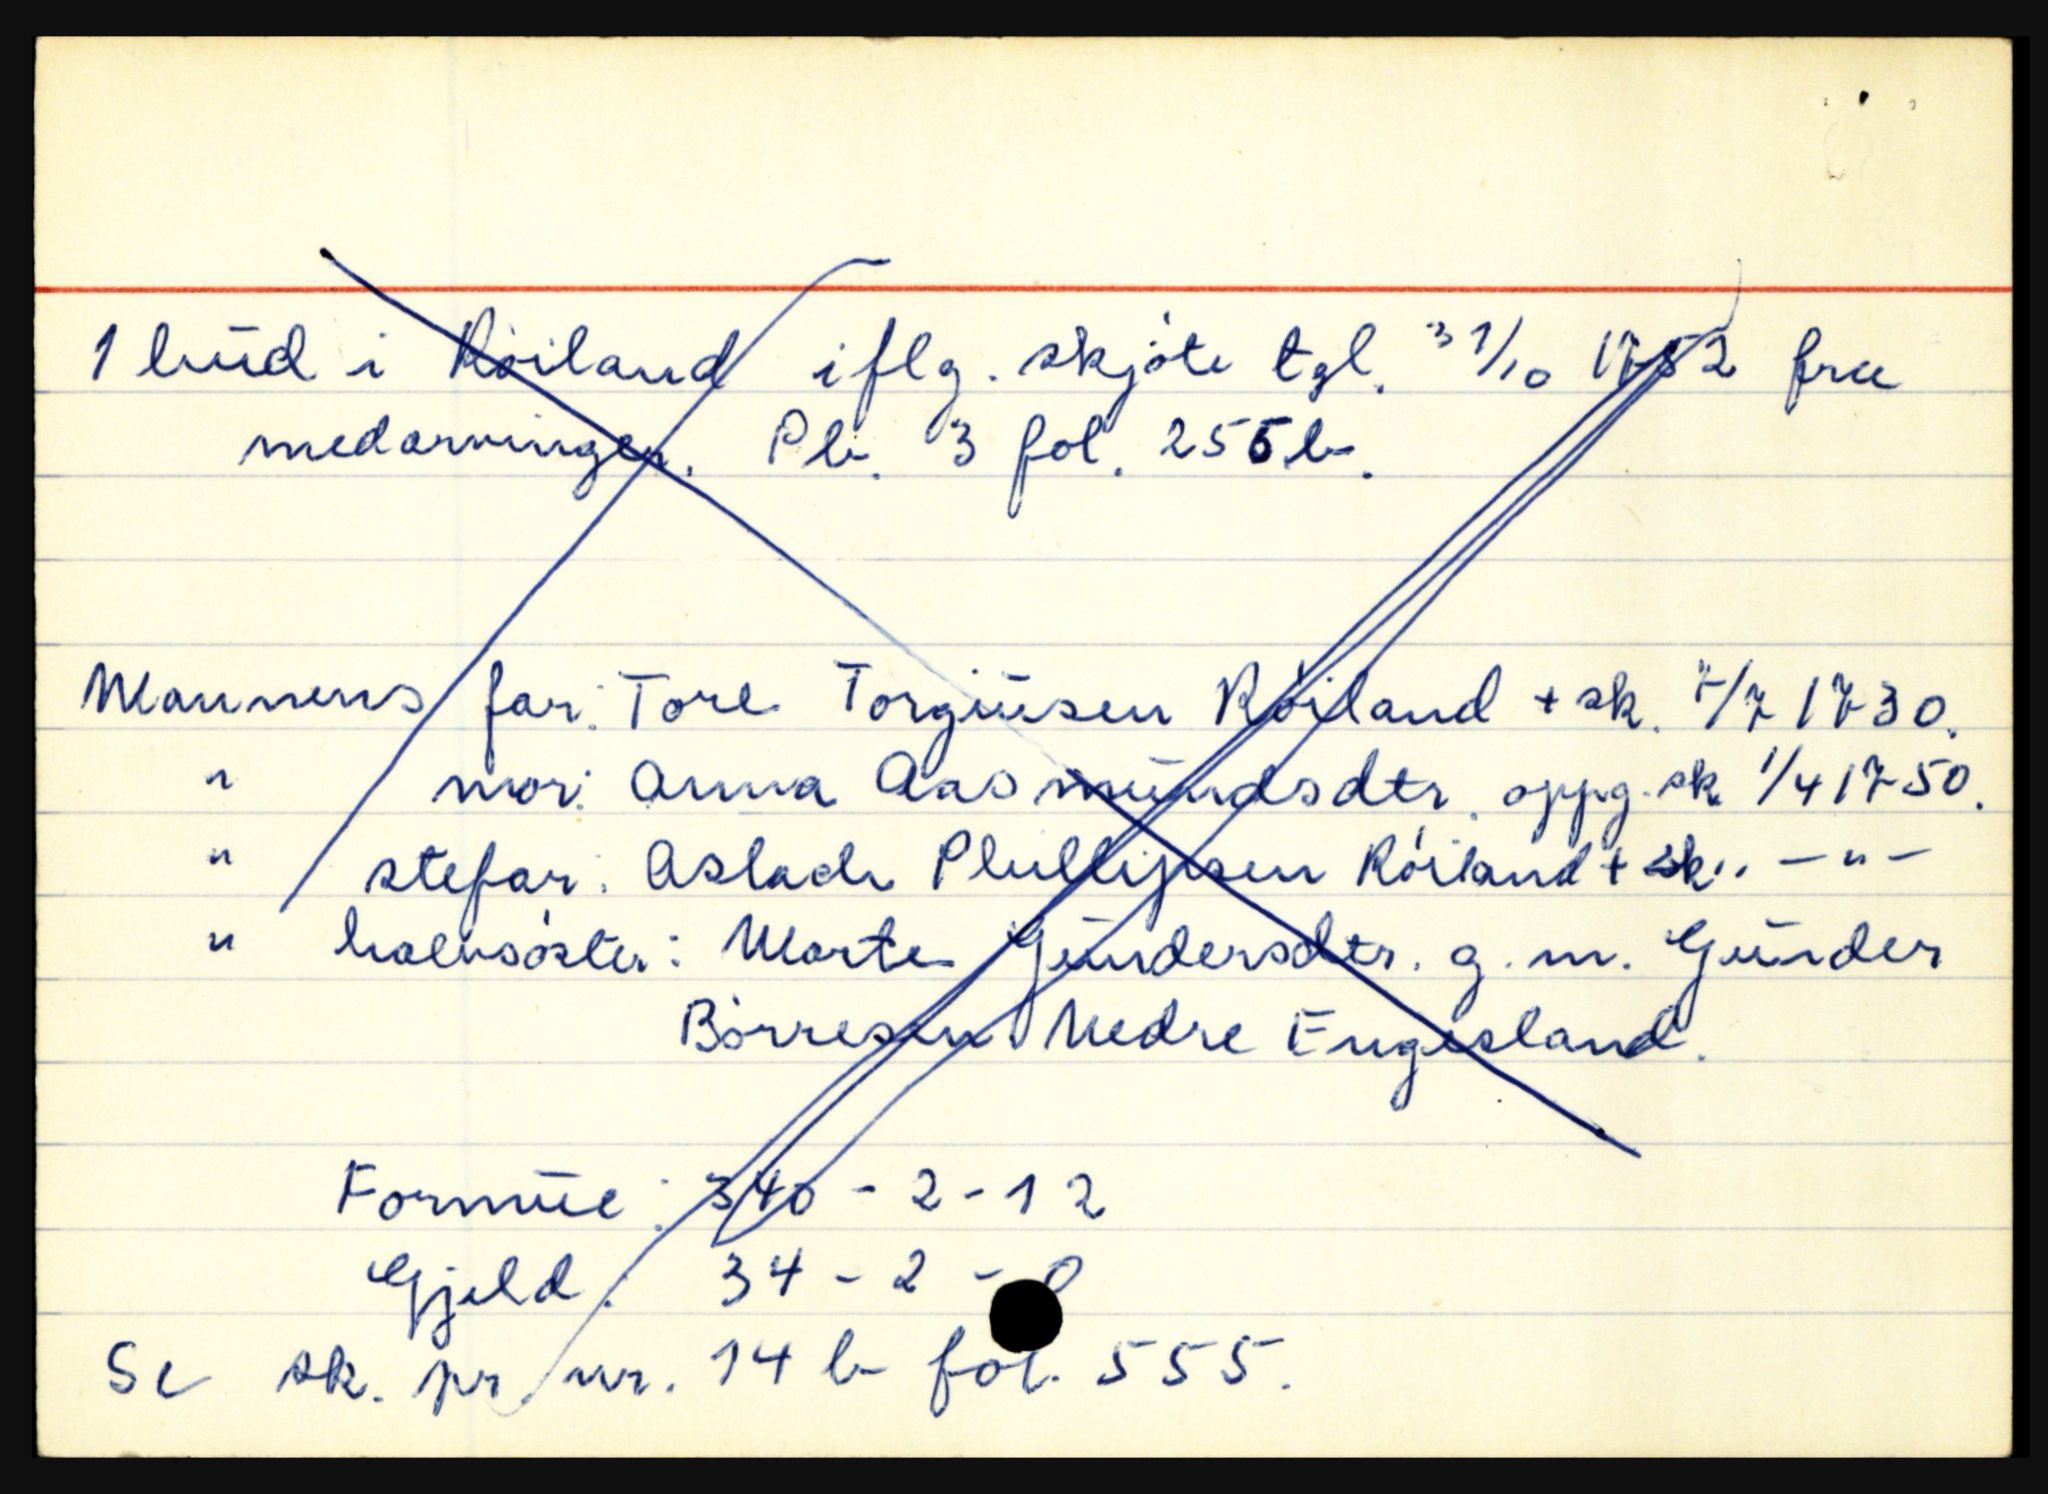 1 hud i Röiland iflg. skjöte tgl. 31/10 1752 fra
medarvinger. Pb. 3 fol. 255b.
Mannens far: Tore Torgiusen Röiland + sk. 7/7 1730.
" mor: Anna Aasmundsdtr. oppg. sk 1/4 1750.
" stefar: Aslach Phullipsen Röiland + sk. - " -
" halvsöster: Marte Gundersdtr. g. m. Gunder
Börresen Nedre Engesland.
Formue: 340 - 2 - 12
Gjeld: 34 - 2 - 0
Se sk. pr. nr. 14 b fol. 555.